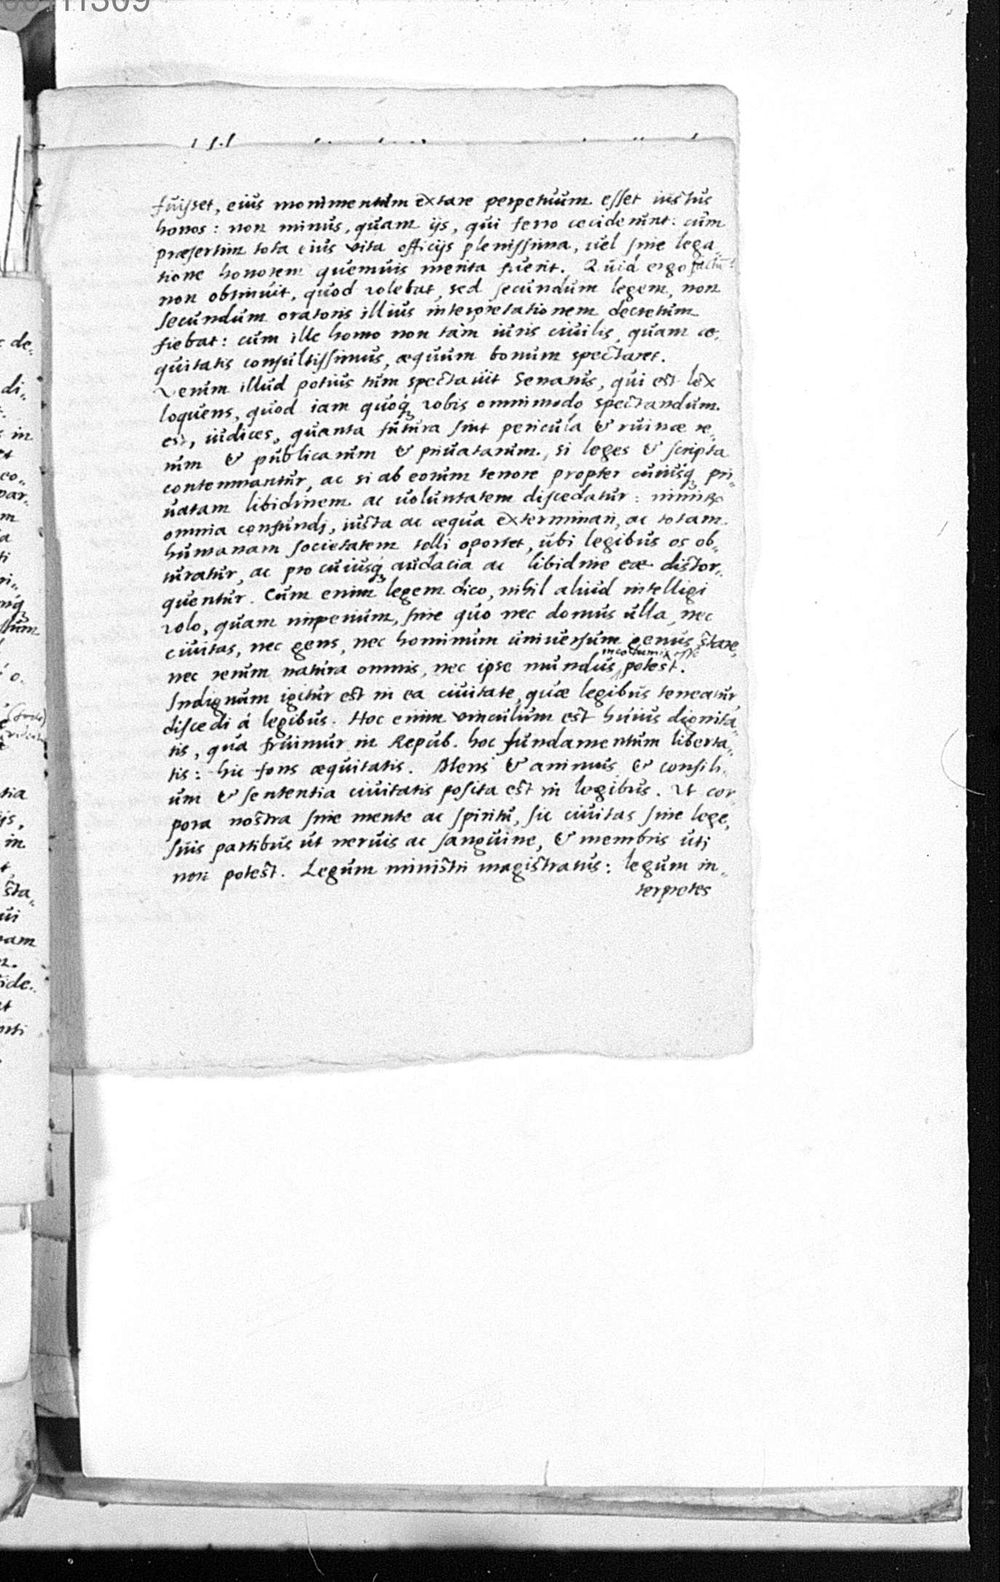 fuisset, eius monimentum extare perpetuum esset iustus
honos: non minus, quam ijs, qui ferro ceciderunt: cum
præsertim tota eius vita officijs plenissima, uel sine lega
tione honorem quemuis merita fuerit. Quid ergo factu?
non obtinuit, quod volebat, sed secundum legem, non
secundum oratoris illius interpretationem decretum
fiebat: cum ille homo non tam iuris ciuilis, quam æ,
quitatis consultissimus, æquum bonum spectaret.
Verum illud potius tum spectauit Senatus, qui est lex
loquens, quod iam quoq; vobis omnimodo spectandum.
est, iudices, quanta futura sint pericula & ruinæ re,,
rum & publicarum & priuatarum, si leges & scripta
contemnantur, ac si ab eorum tenore propter cuiusq; pri,,
uatam libidinem ac uoluntatem discedatur:
omnia confundi, iusta ac æqua exterminari, ac totam
humanam societatem tolli oportet, ubi legibus os ob,,
turatur, ac pro cuiusq; audacia ac libidine eæ distor,,
quentur. Cum enim legem dico, nihil aliud intelligi
volo, quam imperium, sine quo nec domus ulla, nec
ciuitas, nec gens, nec hominum uniuersum genus stare,
incolumis esse
nec rerum natura omnis, nec ipse mundus, potest.
Indignum igitur est in ea ciuitate, quæ legibus teneatur
discedi á legibus. Hoc enim vinculum est huius dignita,,
tis, qua fruimur in Repub. hoc fundamentum liberta,,
tis: hic fons æquitatis. Mens & animus & consili,
um & sententia ciuitatis posita est in legibus. Ut cor,,
pora nostra sine mente ac spiritu, sic ciuitas sine lege,
suis partibus ut neruis ac sanguine, & membris uti
non potest. Legum ministri magistratus: legum in,,
terpretes